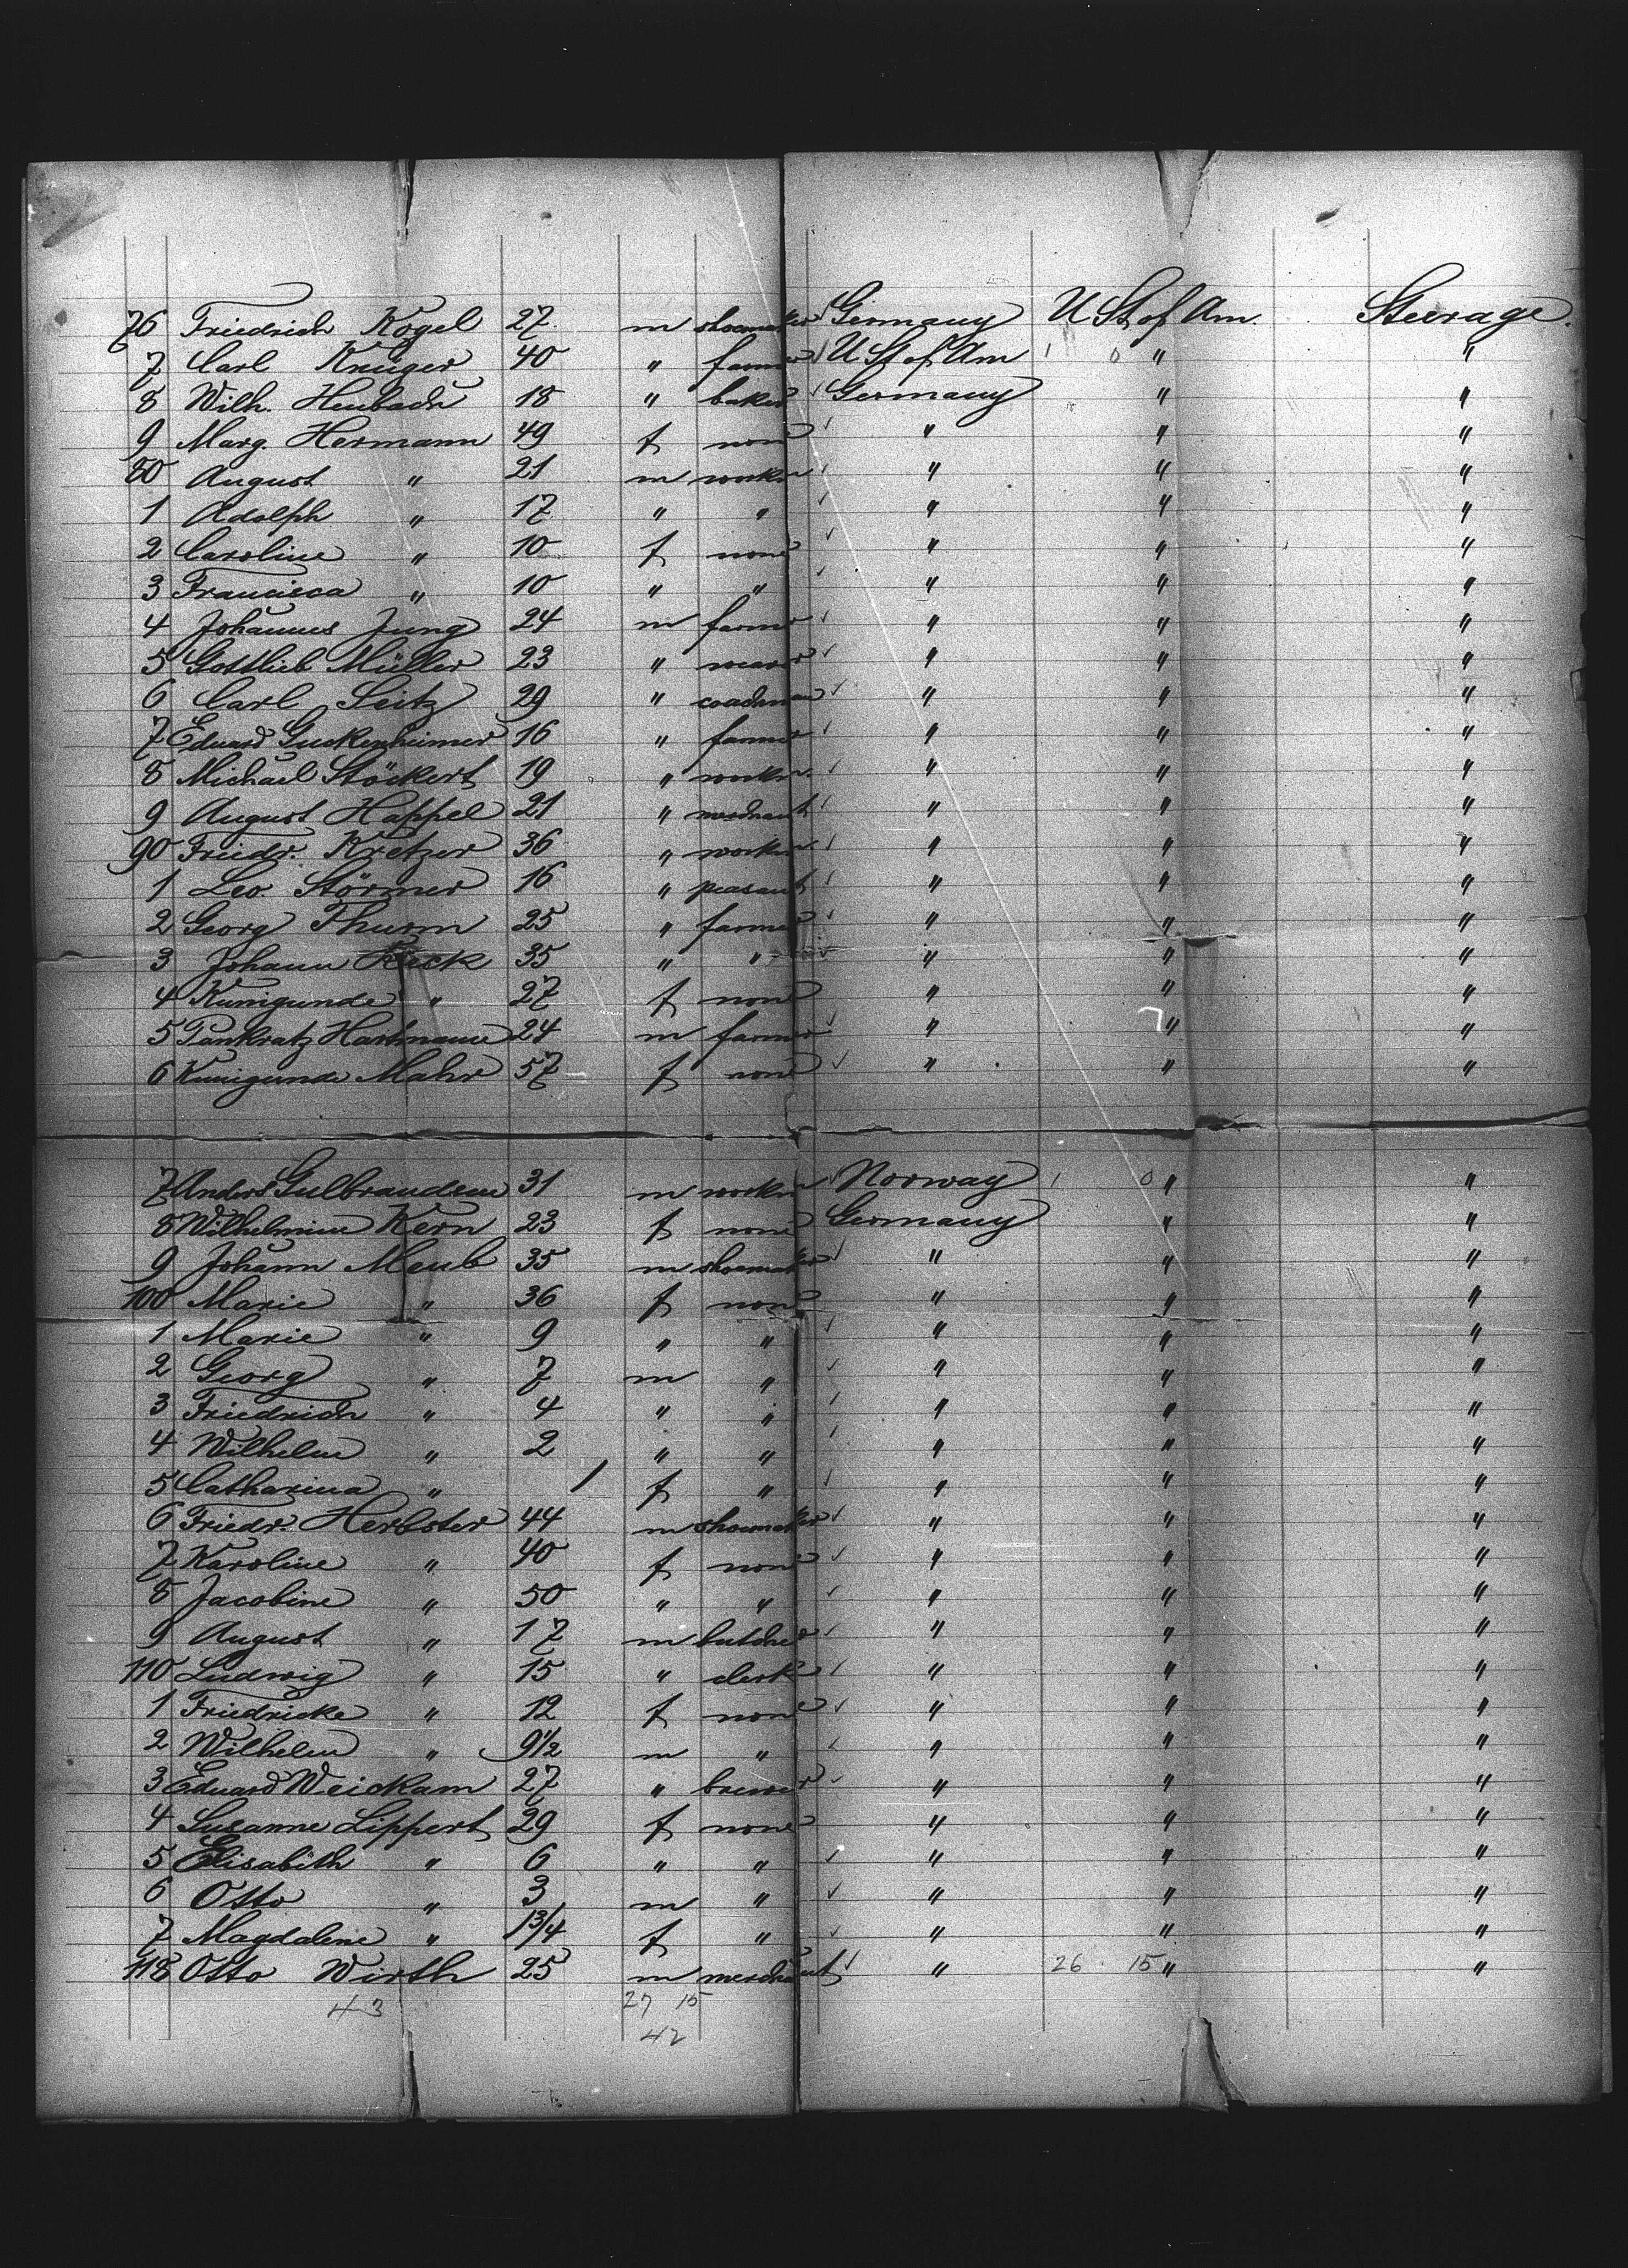 76 Friedrich Kögel 27 m shoemaker Germany U St of Am. Steerage.
7 Carl Krüger 40 " farmer U St of Am 1 0 " "
8 Wilh. Heubach 18 " baker Germany " "
9 Marg. Hermann 49 f none " " "
80 August " 21 m workm " " "
1 Adolph " 17 " " " " "
2 Caroline " 10 f none " " "
3 Francisca " 10 " " " " "
4 Johannes Jung 24 m farmer " " "
5 Gottlieb Müller 23 " weaver " " "
6 Carl Seitz 29 " coachman " " "
7 Eduard Guckenheimer 16 " farmer " " "
8 Michael Stöckert 19 " workm " " "
9 August Happel 21 " merchant " " "
90 Friedr. Kretzer 36 " workm " " "
1 Leo Störmer 16 " peasant " " "
2 Georg Thurm 25 " farmer " " "
3 Johann Keck 35 " " " " "
4 Kunigunde " 27 f none " " "
5 Pankratz Hartmann 24 m farmer " " "
6 Kunigunde Mahr 57 f none " " "
7 Anders Gulbrandsen 31 m workm Norway 1 0 " "
8 Wilhelmine Kern 23 f none Germany " "
9 Johann Meub 35 m shoemaker " " "
100 Marie " 36 f none " " "
1 Marie " 9 " " " " "
2 Georg " 7 m " " " "
3 Friedrich " 4 " " " " "
4 Wilhelm " 2 " " " " "
5 Catharina " 1 f " " " "
6 Friedr. Herbster 44 m shoemaker " " "
7 Karoline " 40 f none " " "
8 Jacobine " 50 " " " " "
9 August " 17 m butcher " " "
110 Ludwig " 15 " clerk " " "
1 Friedricke " 12 f none " " "
2 Wilhelm " 9 1/2 m " " " "
3 Eduard Weickam 27 " brewer " " "
4 Susanne Lippert 29 f none " " "
5 Elisabeth " 6 " " " " "
6 Otto " 3 m " " " "
7 Magdalene " 1 3/4 f " " " "
118 Otto Wirth 25 m merchant " 26 15 " "
43 27 15
42